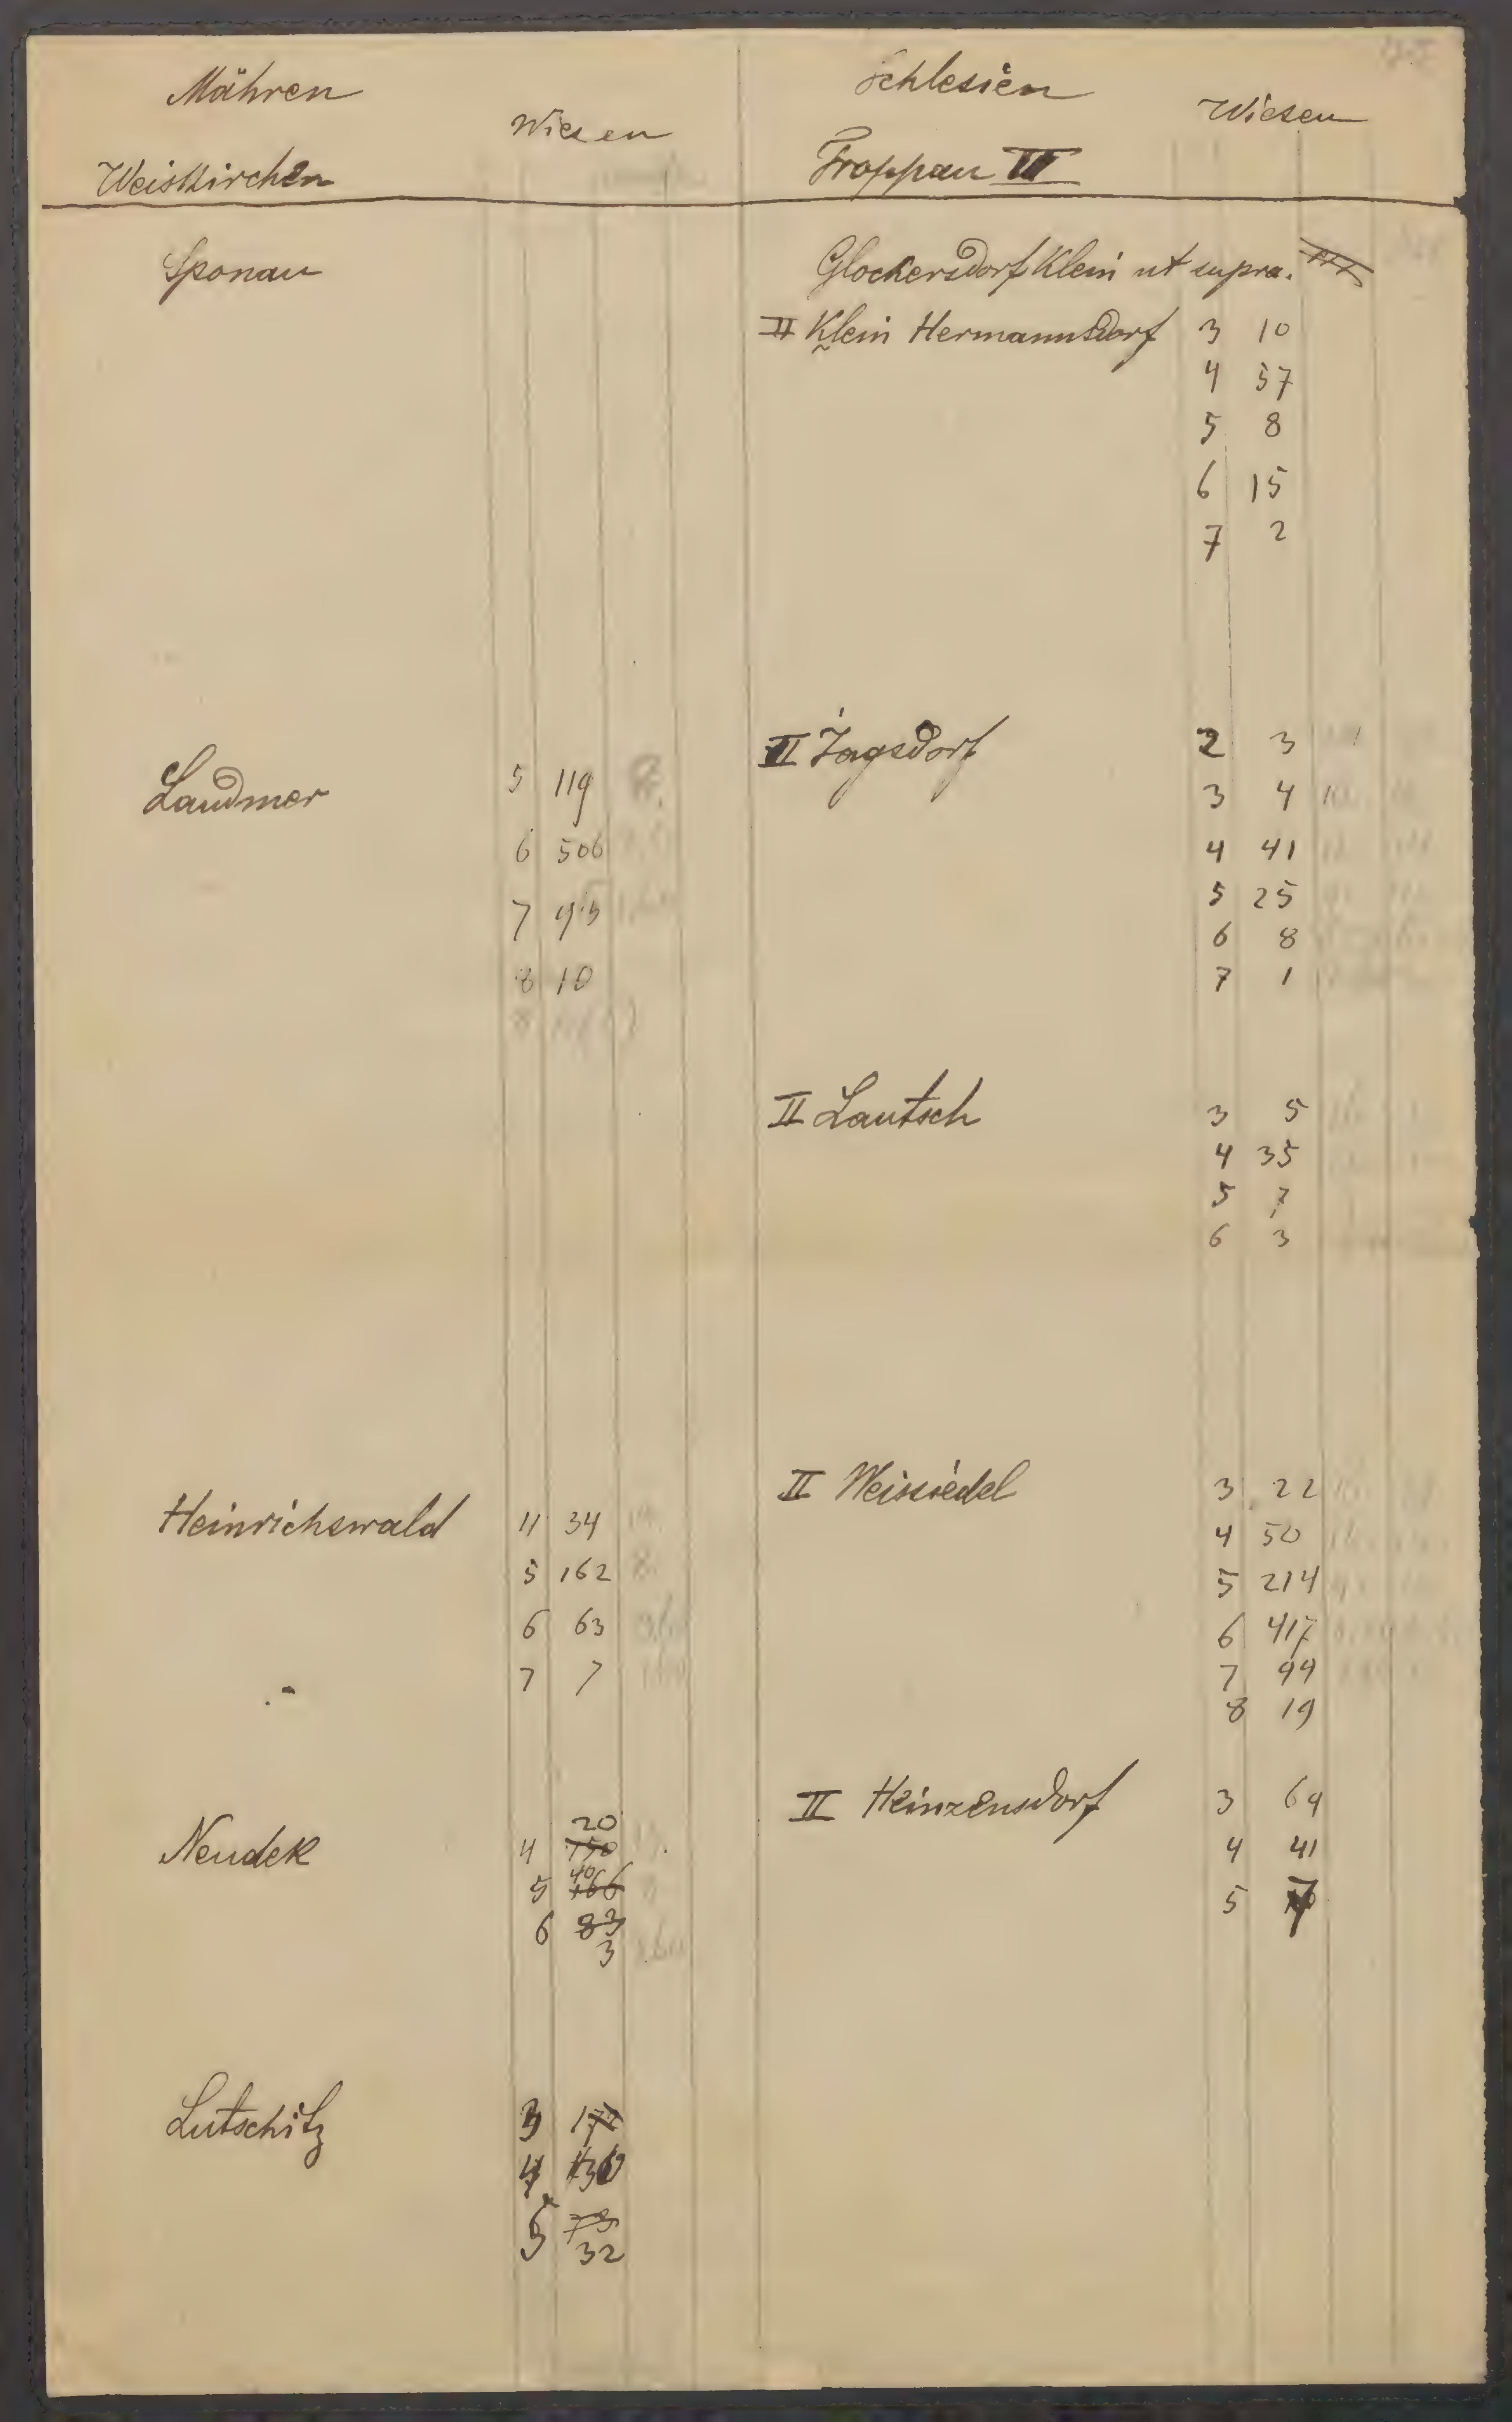 Mähren
Wiesen
Weiskirchen
Sponau
Laudmer 5 119
6 506
7 95
8 10
Heinrichswald 4 34
5 162
6 63
7 7
Neudek 20
4 150
40
5 166
6 83
3
Lutschitz 3 17
4 130
5
32
Schlesien
Wiesen
Troppau III
Glockersdorf Klein ut supra.
II Klein Hermannsdorf 3 10
4 57
5 8
6 15
7 2
II Jagsdorf 2 3
3 4
4 41
5 25
6 8
7 1
II Lautsch 3 5
4 35
5 7
6 3
II Weissiedel 3 22
4 50
5 214
6 417
7 99
8 19
II Heinzensdorf 3 69
4 41
5 7